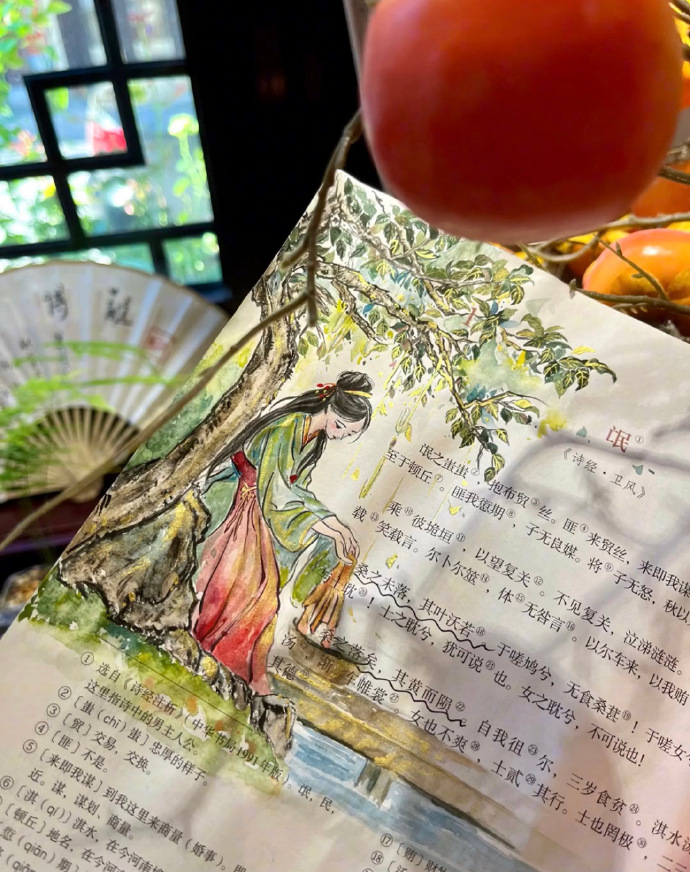 氓①
《诗经·卫风》
氓之蚩蚩②，抱布贸③丝。匪④来贸丝，来即我谋
至于顿丘⑦。匪我愆期⑧，子无良媒。将⑨子无怒，秋以
乘⑩彼垝垣⑪，以望复关⑫。不见复关，泣涕涟涟。
载⑬笑载言。尔卜尔筮⑭，体⑮无咎言。以尔车来，以我贿
桑之未落，其叶沃若⑱。于嗟鸠兮，无食桑葚⑲！于嗟女
耽⑳！士之耽兮，犹可说㉑也。女之耽兮，不可说也！
之落矣，其黄而陨㉒。自我徂㉓尔，三岁食贫㉔。淇水
汤，渐帷裳㉗。女也不爽㉘，士贰㉙其行。士也罔极㉚，二三
其德
①选自《诗经注析》（中华书局1991年版）。氓，民，
这里指诗中的男主人公。
②〔蚩（chī）蚩〕忠厚的样子。
③〔贸〕交易，交换。
④〔匪〕不是。
⑤〔来即我谋〕到我这里来商量（婚事）。即，
近。谋，谋划、商量。
⑥〔淇（qí）〕淇水，在今河南
顿丘〕地名，在今河南
愆（qiān）期〕
⑰〔贿〕财
⑱